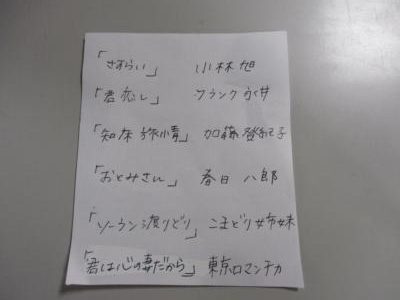 「さすらい」 小林旭
「君恋し」 フランク永井
「知床旅情」 加藤登紀子
「おとみさん」 春日八郎
「ソーラン渡りどり」 こまどり姉妹
「君は心の妻だから」 東京ロマンチカ